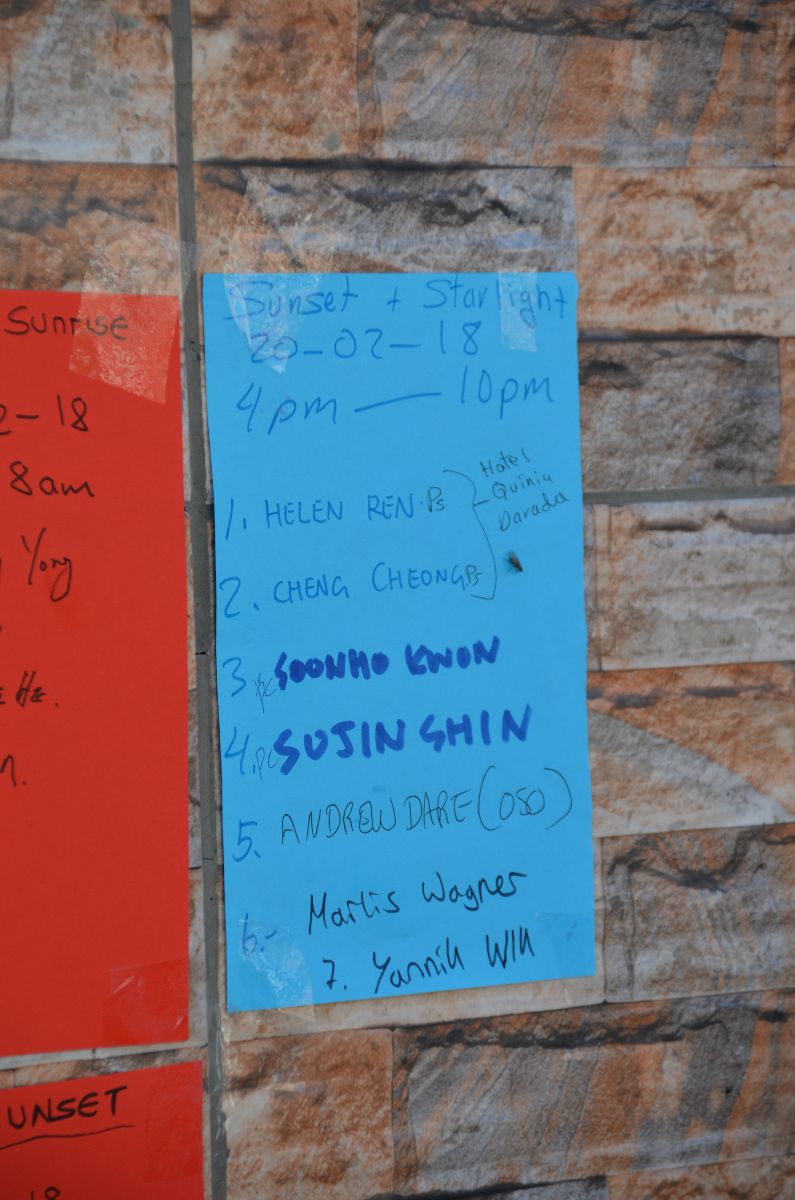 Sunrise
2-18
8am
Yong
He.
Sunset + Starlight
20-02-18
4pm — 10pm
1. HELEN REN. Ps
Hotel
Quinia
Darada
2. CHENG CHEONG. Ps
3. pc SOONHO KWON
4. pc SUJIN SHIN
5. ANDREW DARE (OSO)
6.- Marlis Wagner
7. Yannik Wik
UNSET
18